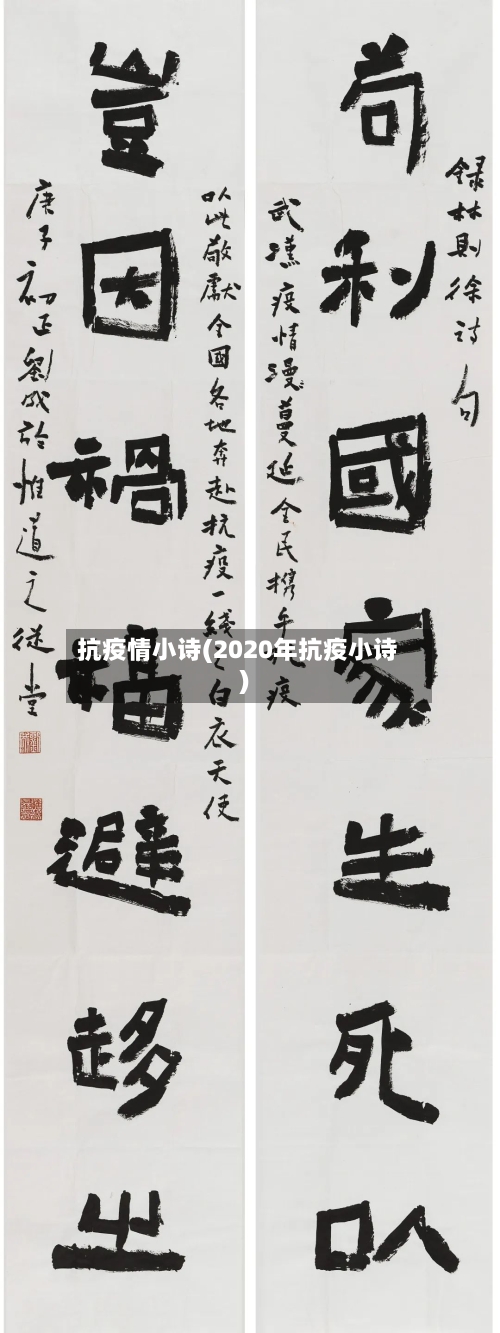 録林則徐詩句
苟利國家生死㕥
武漢疫情漫蔓延全民携手抗疫
㕥此敬獻全國各地奔赴抗疫一綫之白衣天使
豈因禍福避趍之
庚子初正劉成於惟道之從堂
抗疫情小诗(2020年抗疫小诗
)